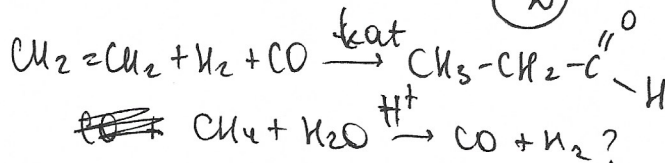 CH2=CH2 + H2 + CO kat→ CH3-CH2-C(=O)-H
CH4 + H2O H+→ CO + H2?